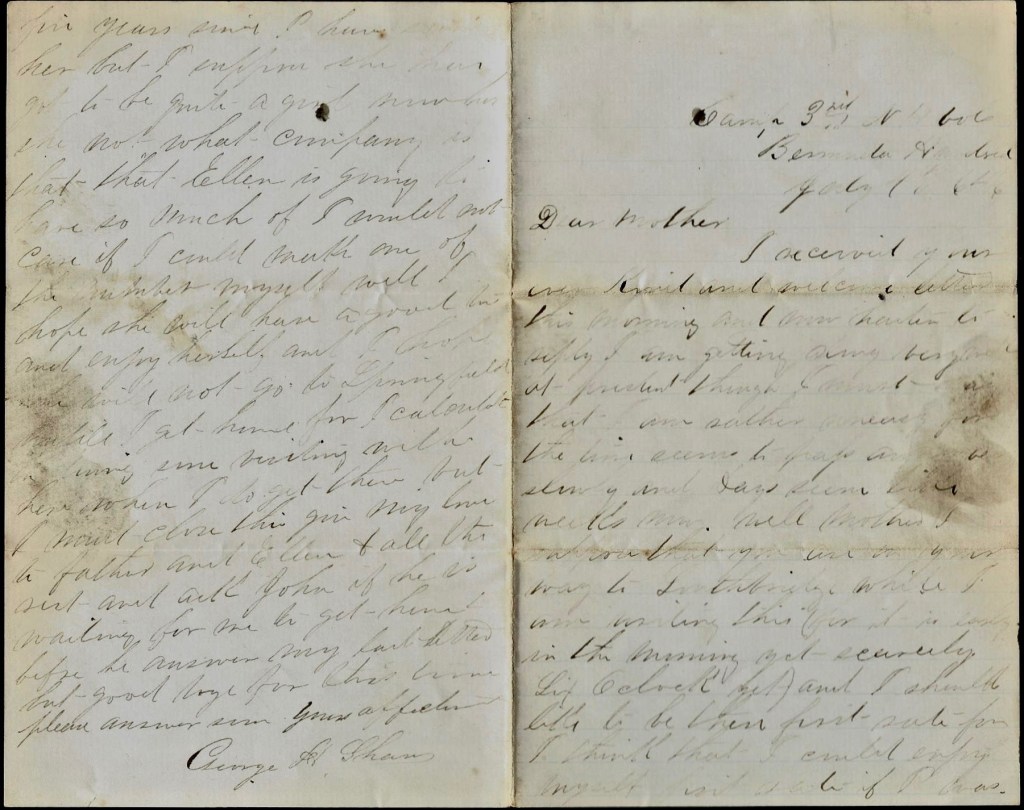 Camp 3rd N
Bermuda Hundred
July
Dear Mother
I received your
ever kind and welcome letter
this morning and now hasten to
reply I am getting along
at present though I must
that I am rather uneasy for
the time seems to pass
slowly and days seem like
weeks now. well Mother I
suppose that you are on your
way to Southbridge while I
am writing this (for it is early
in the morning yet scarcely
Six Oclock yet) and I should
like to be there first rate for
I think that I could enjoy
myself visit if I was.
five years since I have
her but I suppose she has
got to be quite a girl now
not what company is
that that Ellen is going to
have so much of I would not
care if I could make one of
the number myself well I
hope she will have a good
and enjoy herself and I hope
will not go to Springfield
until I get home for I calculate
on doing some visiting with
her when I do get there but
I must close this give my love
to father and Ellen & all the
rest and ask John if he is
waiting for me to get home
before he answer my last letter
but good bye for this time
please answer soon yours affection
George H. Shaw